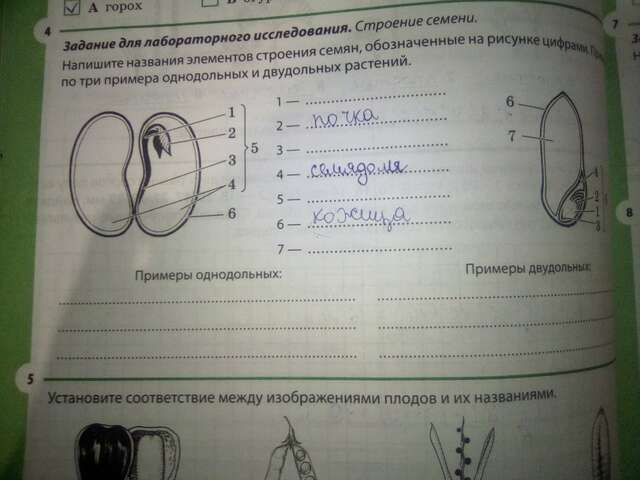 А горох
4
Задание для лабораторного исследования. Строение семени.
Напишите названия элементов строения семян, обозначенные на рисунке цифрами.
по три примера однодольных и двудольных растений.
1
2
3
4
5
6
1 —
2 — почка
3 —
4 — семядоля
5 —
6 — кожица
7 —
6
7
4
2
1
3
Примеры однодольных:
Примеры двудольных:
5
Установите соответствие между изображениями плодов и их названиями.
7
8